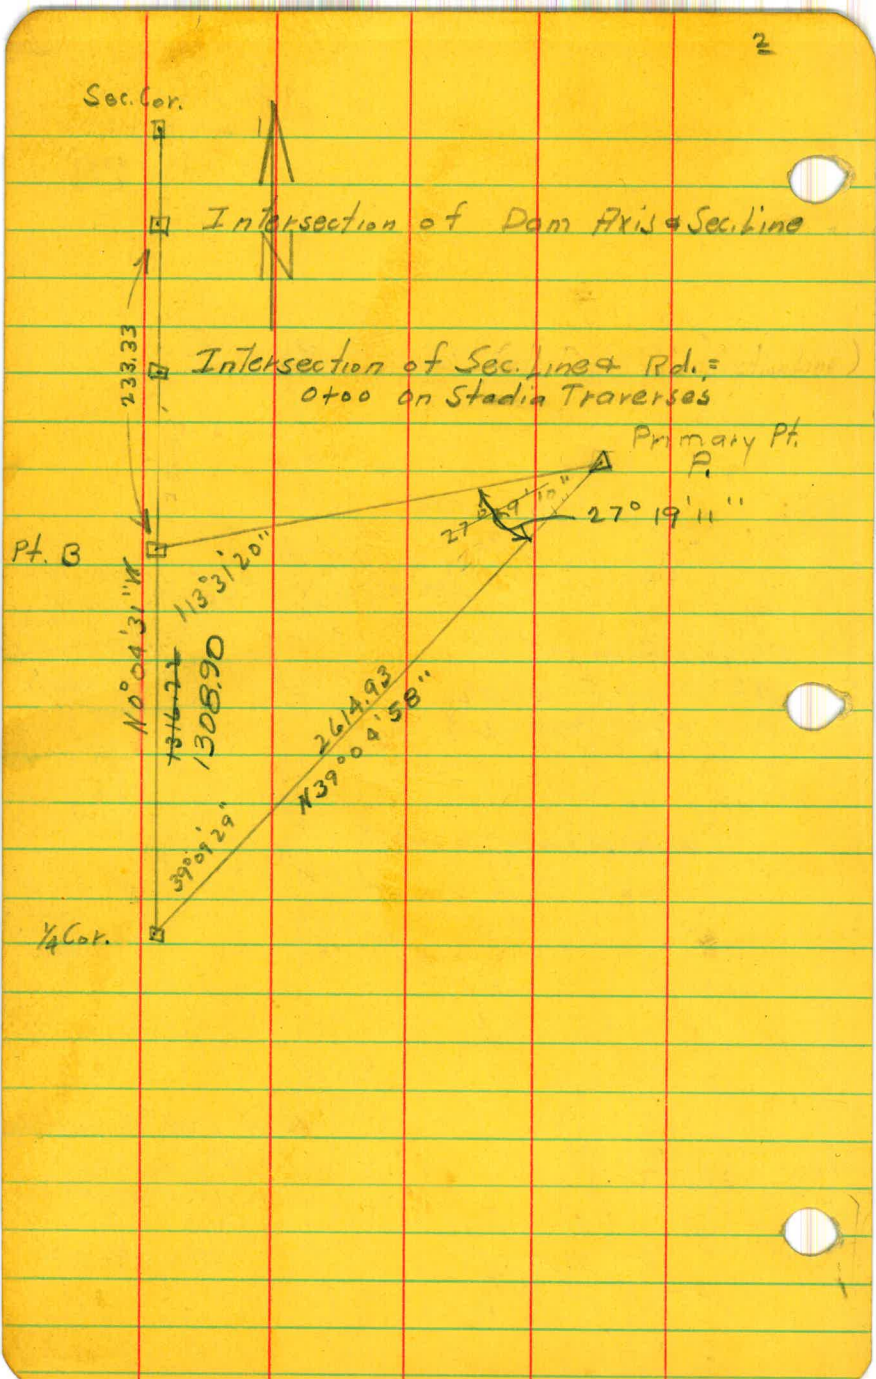 2
Sec. Cor.
N
Intersection of Dam Axis & Sec. Line
233.33
Intersection of Sec. Line & Rd. =
0+00 on Stadia Traverses
Primary Pt.
P.
27° 19' 10"
27° 19' 11"
Pt. B
113° 31' 20"
N0° 04' 31" W
1316.22
1308.90
2614.93
N39° 04' 58"
39° 09' 29"
1/4 Cor.